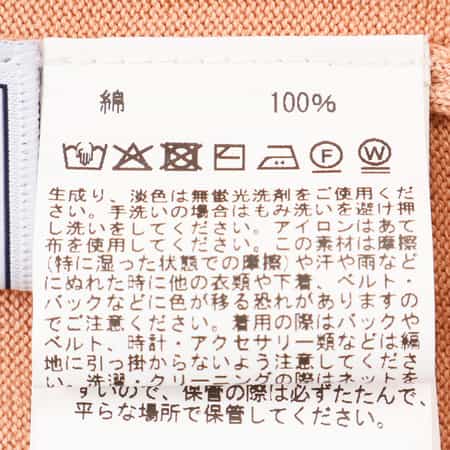 綿 100%
生成り、淡色は無蛍光洗剤をご使用くだ
さい。手洗いの場合はもみ洗いを避け押
し洗いをしてください。アイロンはあて
布を使用してください。この素材は摩擦
(特に湿った状態での摩擦)や汗や雨など
にぬれた時に他の衣類や下着、ベルト・
バックなどに色が移る恐れがありますの
でご注意ください。着用の際はバックや
ベルト、時計・アクセサリー類などは編
地に引っ掛からないよう注意してくださ
い。洗濯・クリーニングの際はネットを
すいので、保管の際は必ずたたんで、
平らな場所で保管してください。